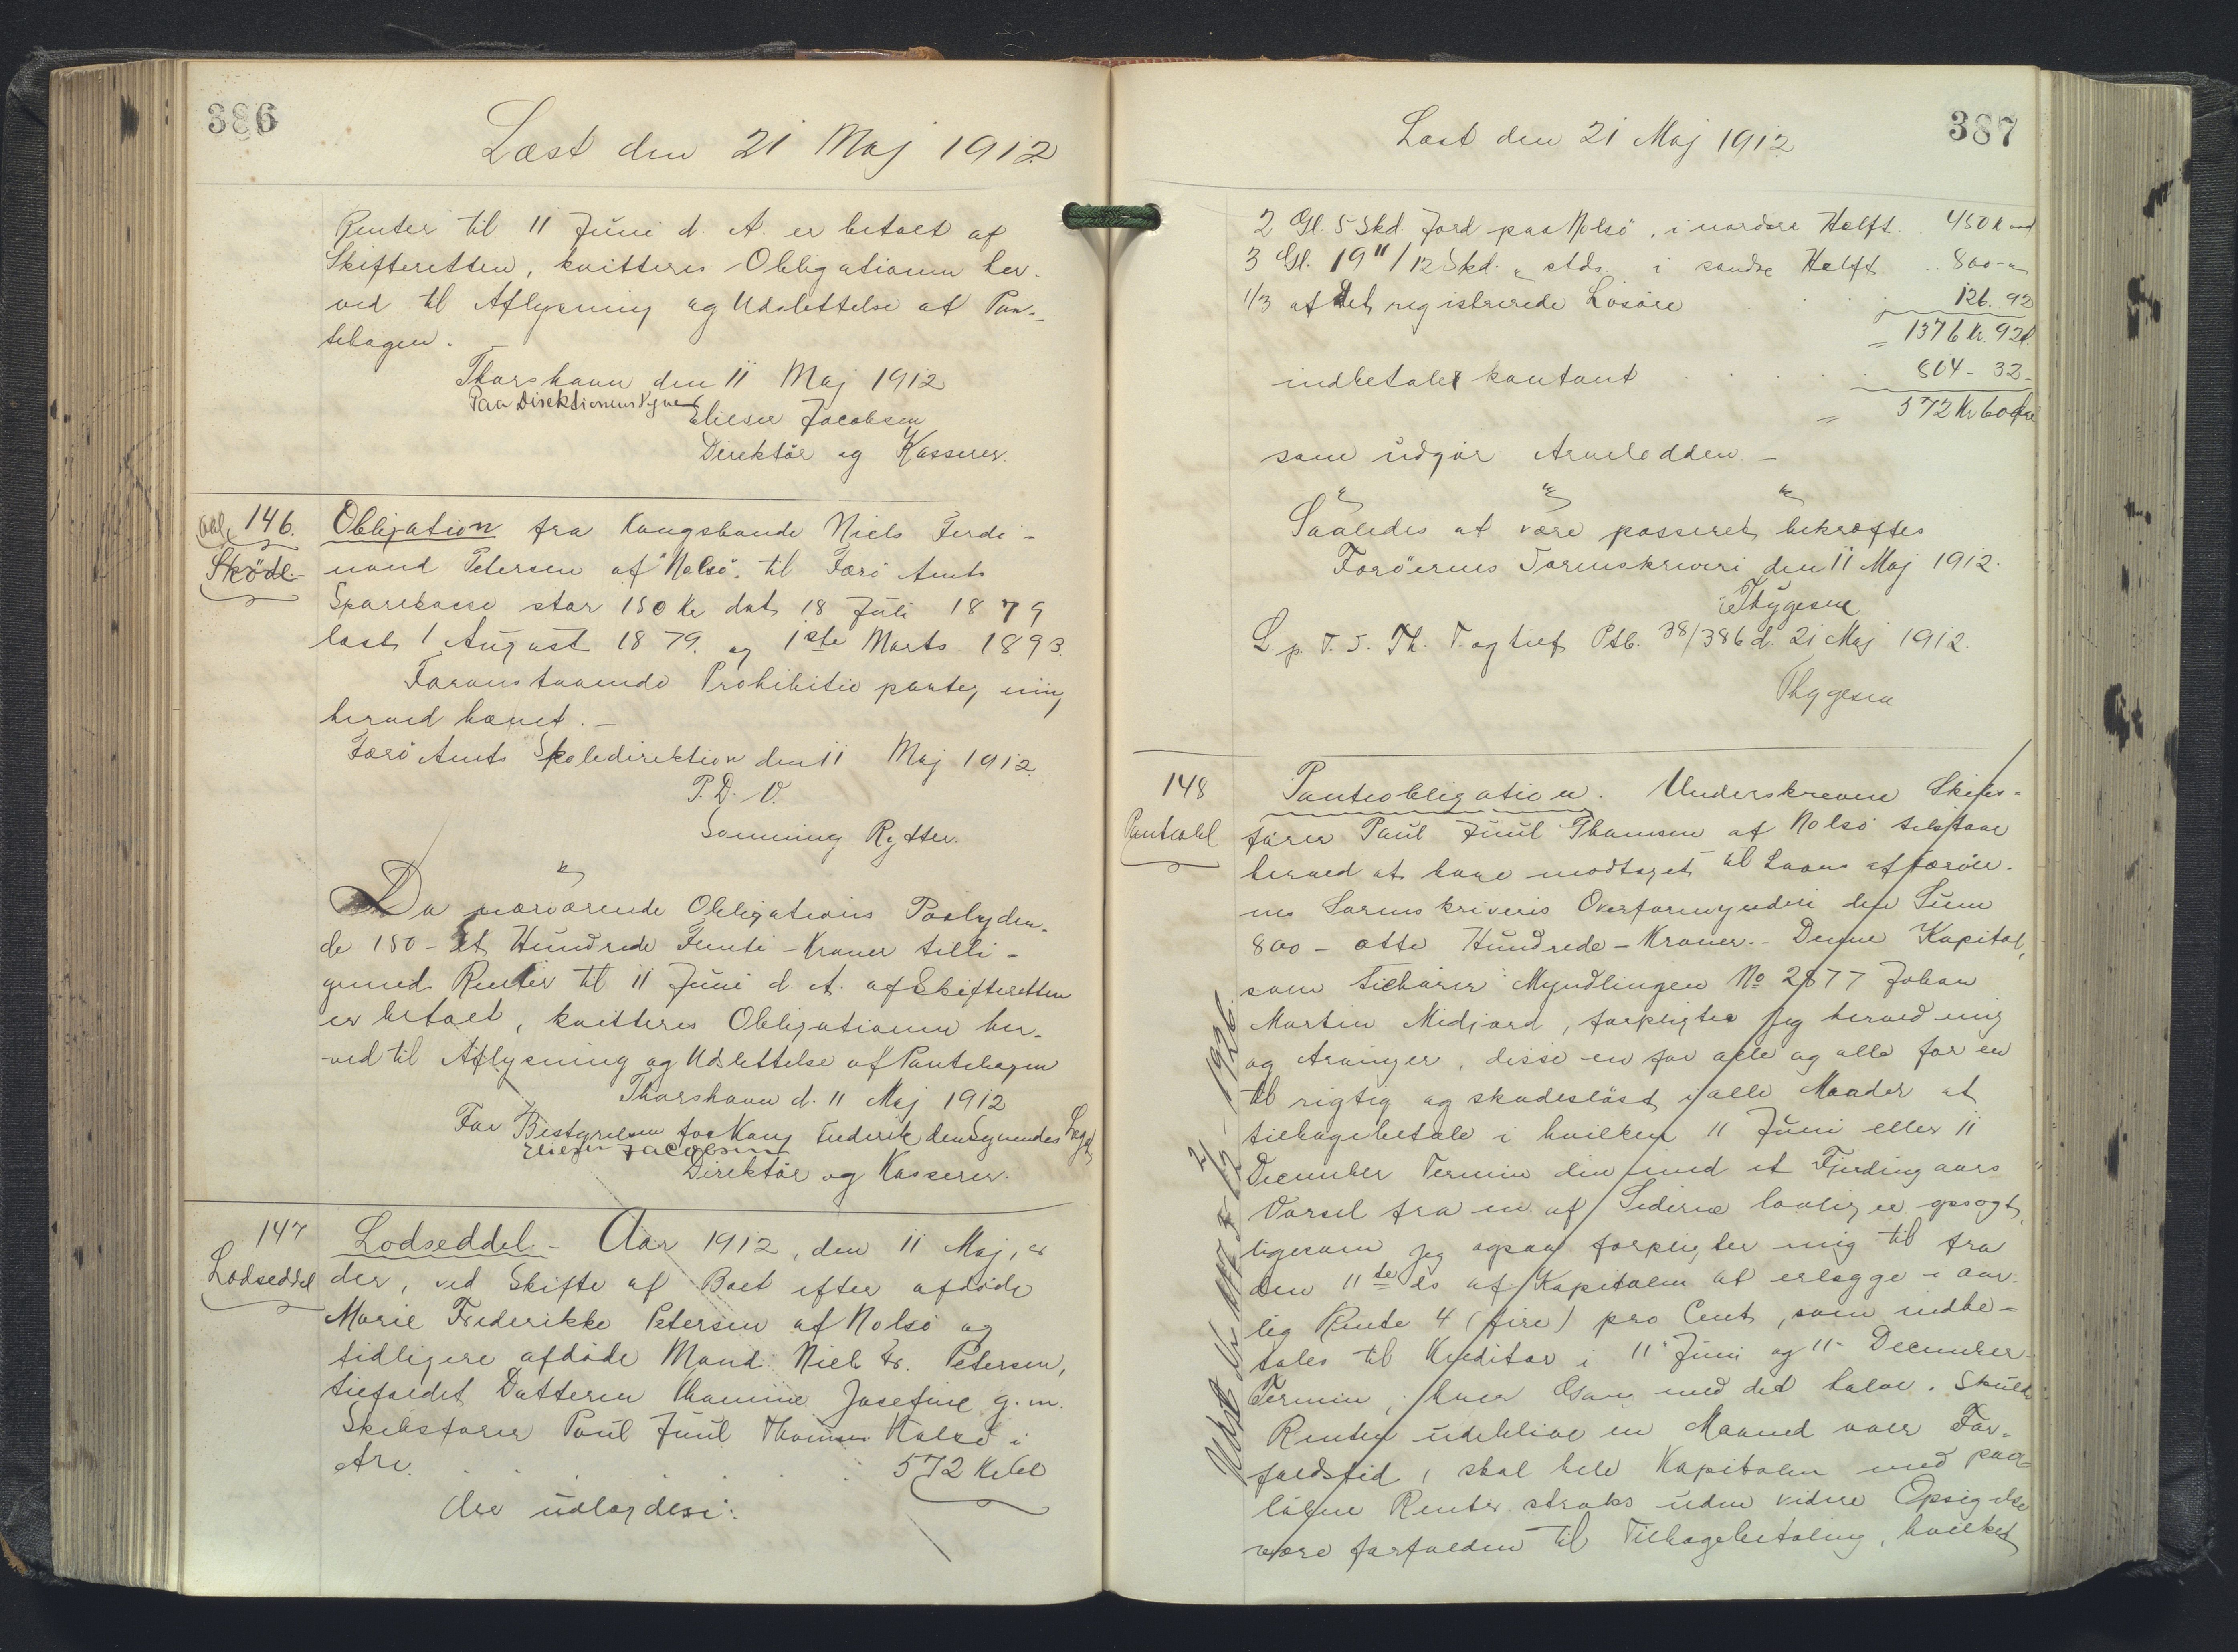 386
Læst den 21 Maj 1912
Renter til 11 Juni d. A. er betalt af
Skifteretten, kvitteres Obligationen her-
ved til Aflysning og Udslettelse af Pan-
tebogen.
Thorshavn den 11 Maj 1912
Paa Direktionens Vegne
Elieser Jacobsen
Direktör og Kasserer.
Obl. 146.
Sköde
Obligation fra Kongsbonde Niels Ferdi-
nand Petersen af Nolsö, til Færö Amts
Sparekasse stor 150 Kr dat 18 Juli 1879
læst 1 August 1879. og 1ste Marts 1893.
Foranstaaende Prohibitiv paateg ning
herved hævet.
Færö Amts Skoledirektion den 11 Maj 1912
P. D. V.
Sonning Rytter.
Da nærværende Obligations Paalyden-
de 150 - Et Hundrede Femti - Kroner tilli-
gemed Renter til 11 Juni d. A. af Skifteretten
er betalt, kvitteres Obligationen her-
ved til Aflysning og Udslettelse af Pantebogen
Thorshavn d. 11 Maj 1912
For Bestyrelsen for Kong Frederik den Syvendes Legat
Elieser Jacobsen
Direktör og Kasserer.
147
Lodseddel
Lodseddel - Aar 1912, den 11 Maj, er
der, ved Skifte af Boet efter afdöde
Marie Frederikke Petersen af Nolsö og
tidligere afdöde Mand Niels Fr. Petersen,
tilfaldet Datteren Thomine Josefine g. m.
Skibsförer Poul Juul Thomsen Nolsö i
Arv . . . . . . 572 Kr 60
der udlagdes i:
387
Læst den 21 Maj 1912
2 Gl. 5 Skd. Jord paa Nolsö, i nordre Halft. 450 Kr
3 Gl. 19 11/12 Skd. " stds. i söndre Halft . . 800 - "
1/3 af det registrerede Lösöre . . . 126. 92
= 1376 Kr. 92
indbetaler kontant . . . . 804 - 32 -
= 572 Kr 60 Öre
som udgör Arvelodden. -
Saaledes at være passeret, bekræftes
Færöernes Sorenskriveri den 11 Maj 1912.
Thygesen
L. p. T. S. Th. T. og tilf Ptb. 38/386 d. 21 Maj 1912.
Thygesen
148
Pantobl
Pantobligation. Underskrevne Skibs-
förer Poul Juul Thomsen af Nolsö tilstaar
herved at have modtaget til Laans af Færöer-
nes Sorenskriveris Overformynderi den Sum
800 - otte Hundrede - Kroner. - Denne Kapital,
som tilhörer Myndlingen No 2877 Johan
Martin Midjord, forpligter jeg herved mig
og Arvinger, disse en for alle og alle for en
til rigtig og skadeslöst i alle Maader at
tilbagebetale i hvilken 11 Juni eller 11
December Termin den med et Fjerdingaars
Varsel fra en af Siderne lovlig er opsagt,
ligesom jeg ogsaa forpligter mig til fra
den 11te ds af Kapitalen at erlægge i aar-
lig Rente 4 (fire) pro Cent, som indbe-
tales til Kreditor i 11 Juni og 11 December
Termin, hver Gang med det halve. Skulde
Renten udeblive en Maaned over For-
faldstid, skal hele Kapitalen med paa-
löbne Renter straks uden videre Opsigelse
være forfalden til Tilbagebetaling, hvilket